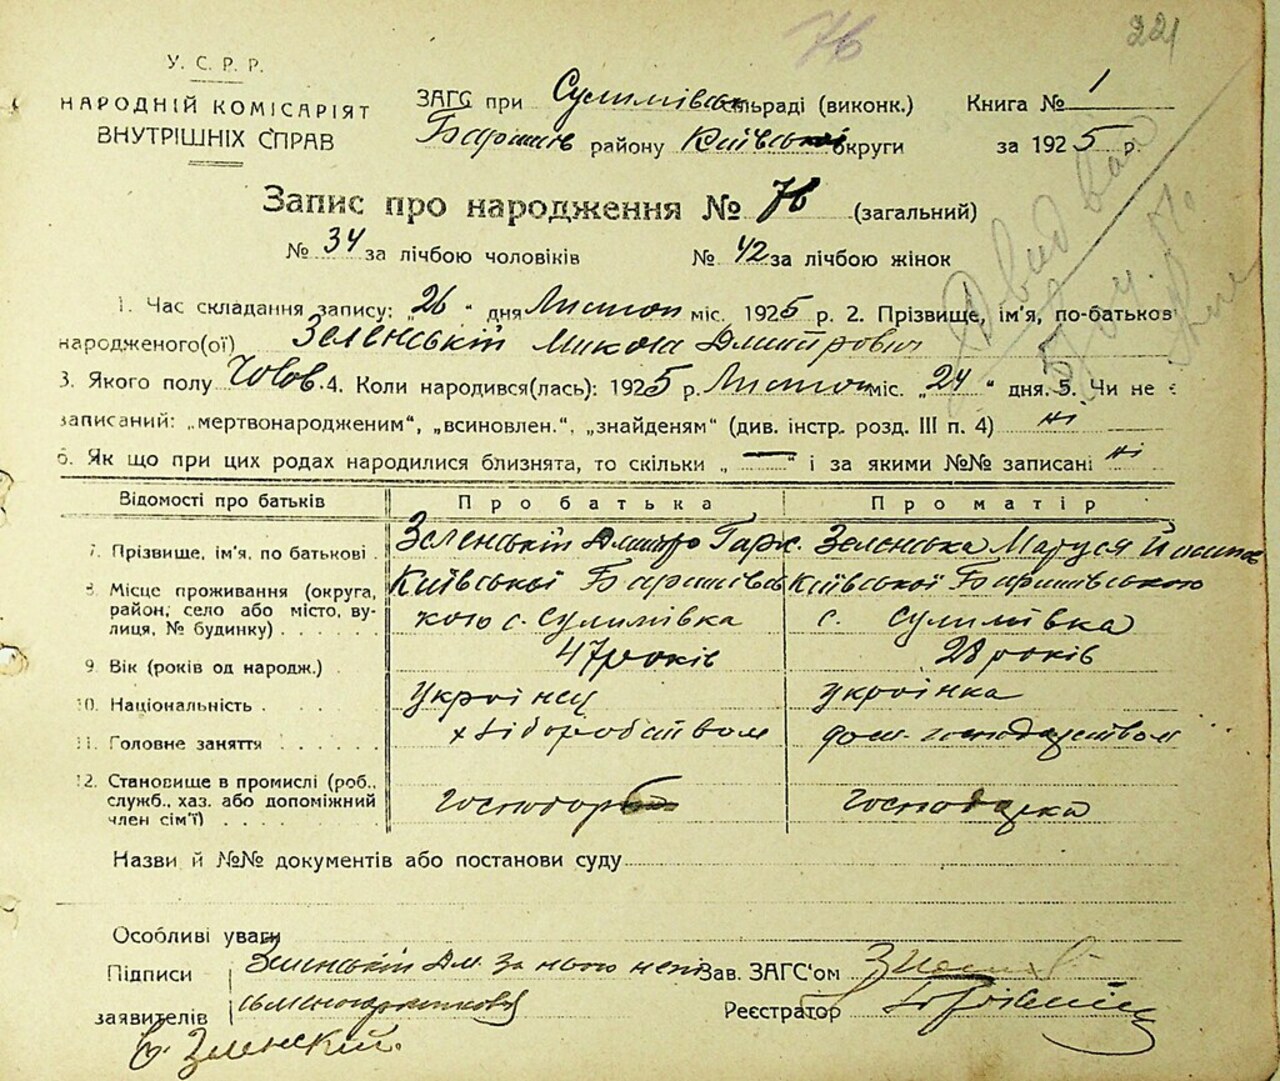 76
221
У. С. Р. Р.
НАРОДНІЙ КОМІСАРІЯТ
ВНУТРІШНІХ СПРАВ
ЗАГС при Сулимівськ сільраді (виконк.)
Баришів району Київської округи
Книга № 1
за 1925 р.
Запис про народження № 76 (загальний)
№ 34 за лічбою чоловіків № 42 за лічбою жінок
1. Час складання запису: „26" дня Листоп міс. 1925 р. 2. Прізвище, ім'я, по-батьков
народженого(ої) Зеленський Микола Дмитрович
3. Якого полу Чолов. 4. Коли народився(лась): 1925 р. Листоп міс. „24" дня. 5. Чи не є
записаний: „мертвонародженим", „всиновлен.", „знайденям" (див. інстр. розд. III п. 4) ні
6. Як що при цих родах народилися близнята, то скільки „—" і за якими №№ записані ні
Відомості про батьків Про батька Про матір
7. Прізвище, ім'я, по батькові . Зеленській Дмитро Зеленська Маруся
8. Місце проживання (округа, район, село або місто, вулиця, № будинку) . . . . . .
Київської Баришівсь
кою с. Сулимівка
Київської Баришівською
с. Сулимівка
9. Вік (років од народж.) . 47 років 28 років
10. Національність . . . . українец українка
11. Головне заняття . . . . . . хліборобством дом. господарством
12. Становище в промислі (роб., служб., хаз. або допоміжний член сім'ї) . . . . господар господарка
Назви й №№ документів або постанови суду
Особливі уваги
Підписи заявителів
Зеленській Дм. За нього непи
сьменого
Зленский.
Зав. ЗАГС'ом
Реєстратор